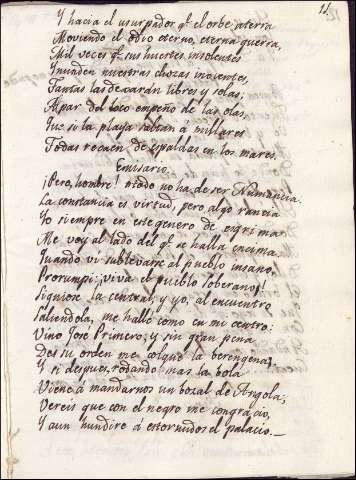 14
Y hacia el usurpador q.e el orbe aterra
Moviendo el odio eterno, eterna guerra,
Mil veces q.e sus huestes insolentes
Invaden nuestras chozas inocentes,
Tantas las dexarán libres y solas;
A par del loco empeño de las olas,
Que si la playa saltan á millares
Todas recaen de espaldas en los mares.
Emisario
¡Pero, hombre! todo no ha de ser Numancia.
La constancia es virtud, pero algo rancia
Yo siempre en este genero de
Me voy al lado del q.e se halla encima.
Quando vi sublevarse al pueblo insano,
Prorrumpí: ¡viva el pueblo soberano!
Siguiose la central; y yo, al encuentro
Saliendola, me hallé como en mi centro:
Vino José Primero; y sin gran pena
De su orden me colgué la berengena;
Y si despues, rodando mas la bola
Viene á mandarnos un bozal de Angola;
Vereis que con el negro me congracio,
Y aun hundiré á estornudos el palacio._